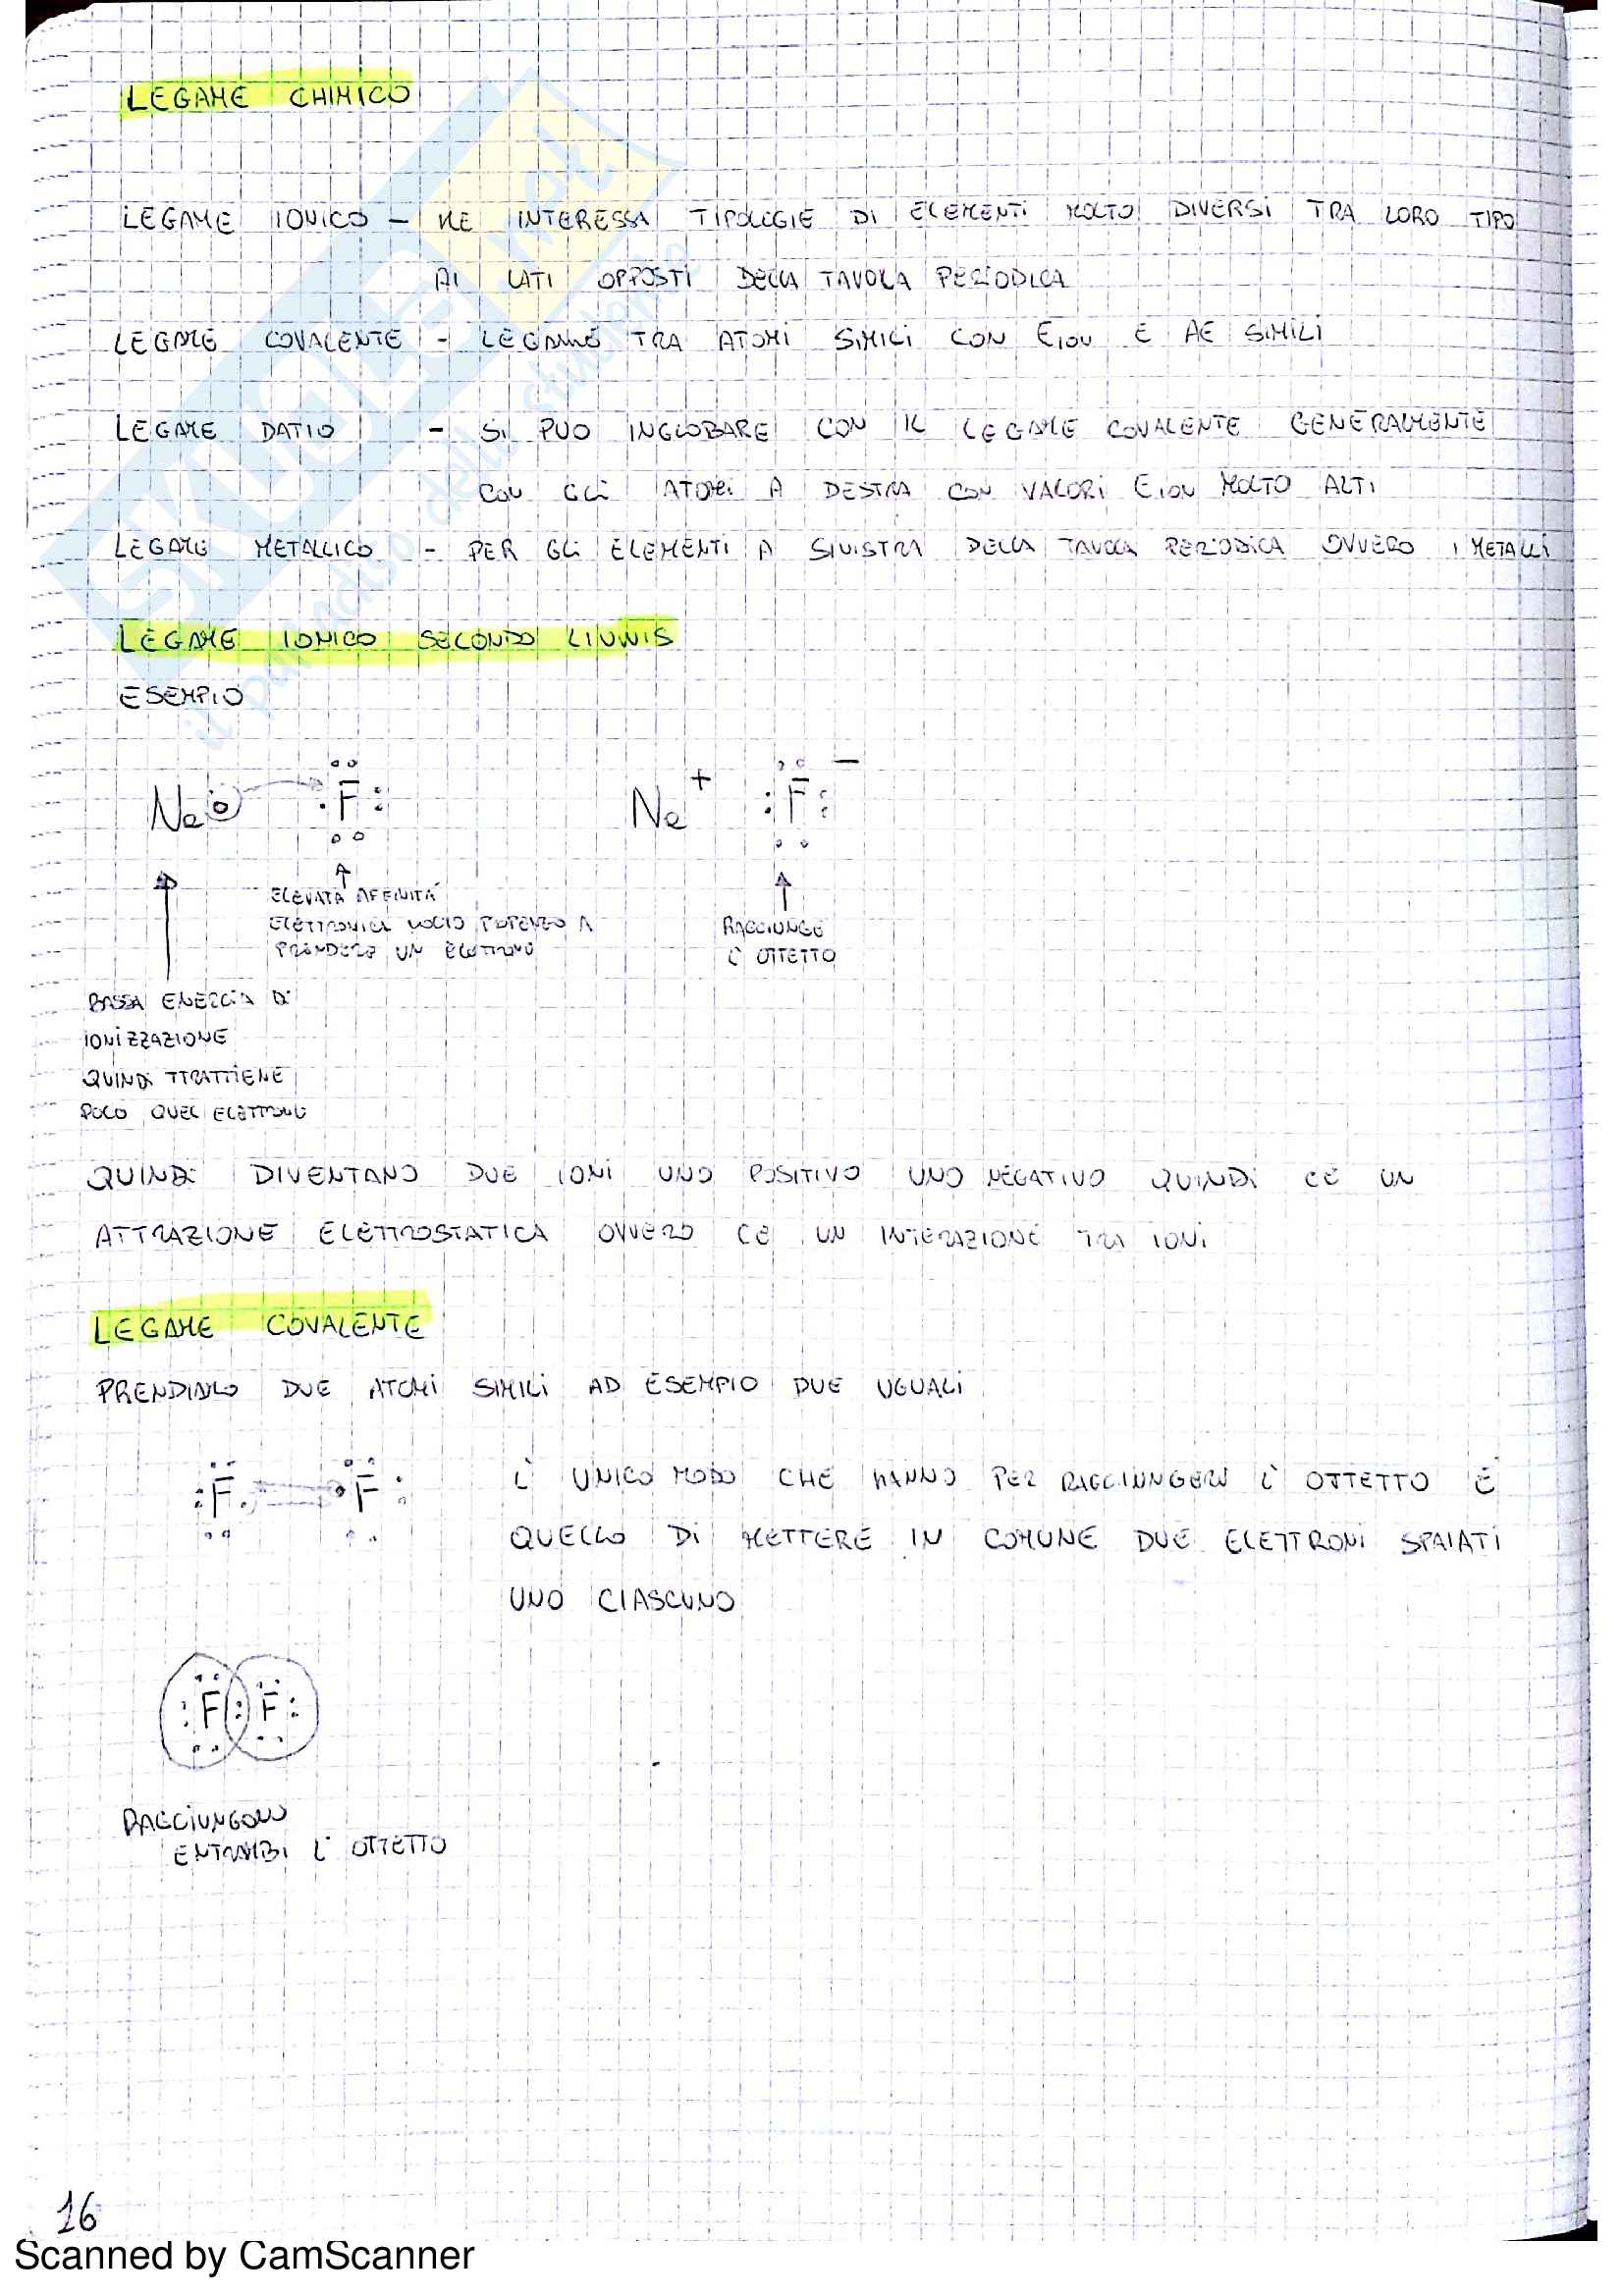 LEGAME CHIMICO
LEGAME IONICO – NE INTERESSA TIPOLOGIE DI ELEMENTI MOLTO DIVERSI TRA LORO TIPO
AI LATI OPPOSTI DELLA TAVOLA PERIODICA
LEGAME COVALENTE - LEGAME TRA ATOMI SIMILI CON EION E AE SIMILI
LEGAME DATIO - SI PUO INGLOBARE CON IL LEGAME COVALENTE GENERALMENTE
CON GLI ATOMI A DESTRA CON VALORI EION MOLTO ALTI
LEGAME METALLICO - PER GLI ELEMENTI A SINISTRA DELLA TAVOLA PERIODICA OVVERO I METALLI
LEGAME IONICO SECONDO LIUWIS
ESEMPIO
Na F Na + F –
ELEVATA AFFINITÀ
ELETTRONICA PROPENSO A
PRENDERE UN ELETTRONE
RAGGIUNGE
L' OTTETTO
BASSA ENERGIA DI
IONIZZAZIONE
QUINDI TRATTIENE
POCO QUEL ELETTRONE
QUINDI DIVENTANO DUE IONI UNO POSITIVO UNO NEGATIVO QUINDI CE UN
ATTRAZIONE ELETTROSTATICA OVVERO CE UN INTERAZIONE TRA IONI
LEGAME COVALENTE
PRENDIAMO DUE ATOMI SIMILI AD ESEMPIO DUE UGUALI
F F
L' UNICO MODO CHE HANNO PER RAGGIUNGERE L' OTTETTO È
QUELLO DI METTERE IN COMUNE DUE ELETTRONI SPAIATI
UNO CIASCUNO
F : F
RAGGIUNGONO
ENTRAMBI L' OTTETTO
16
Scanned by CamScanner
SKUOLA.net
il paradiso dello studente